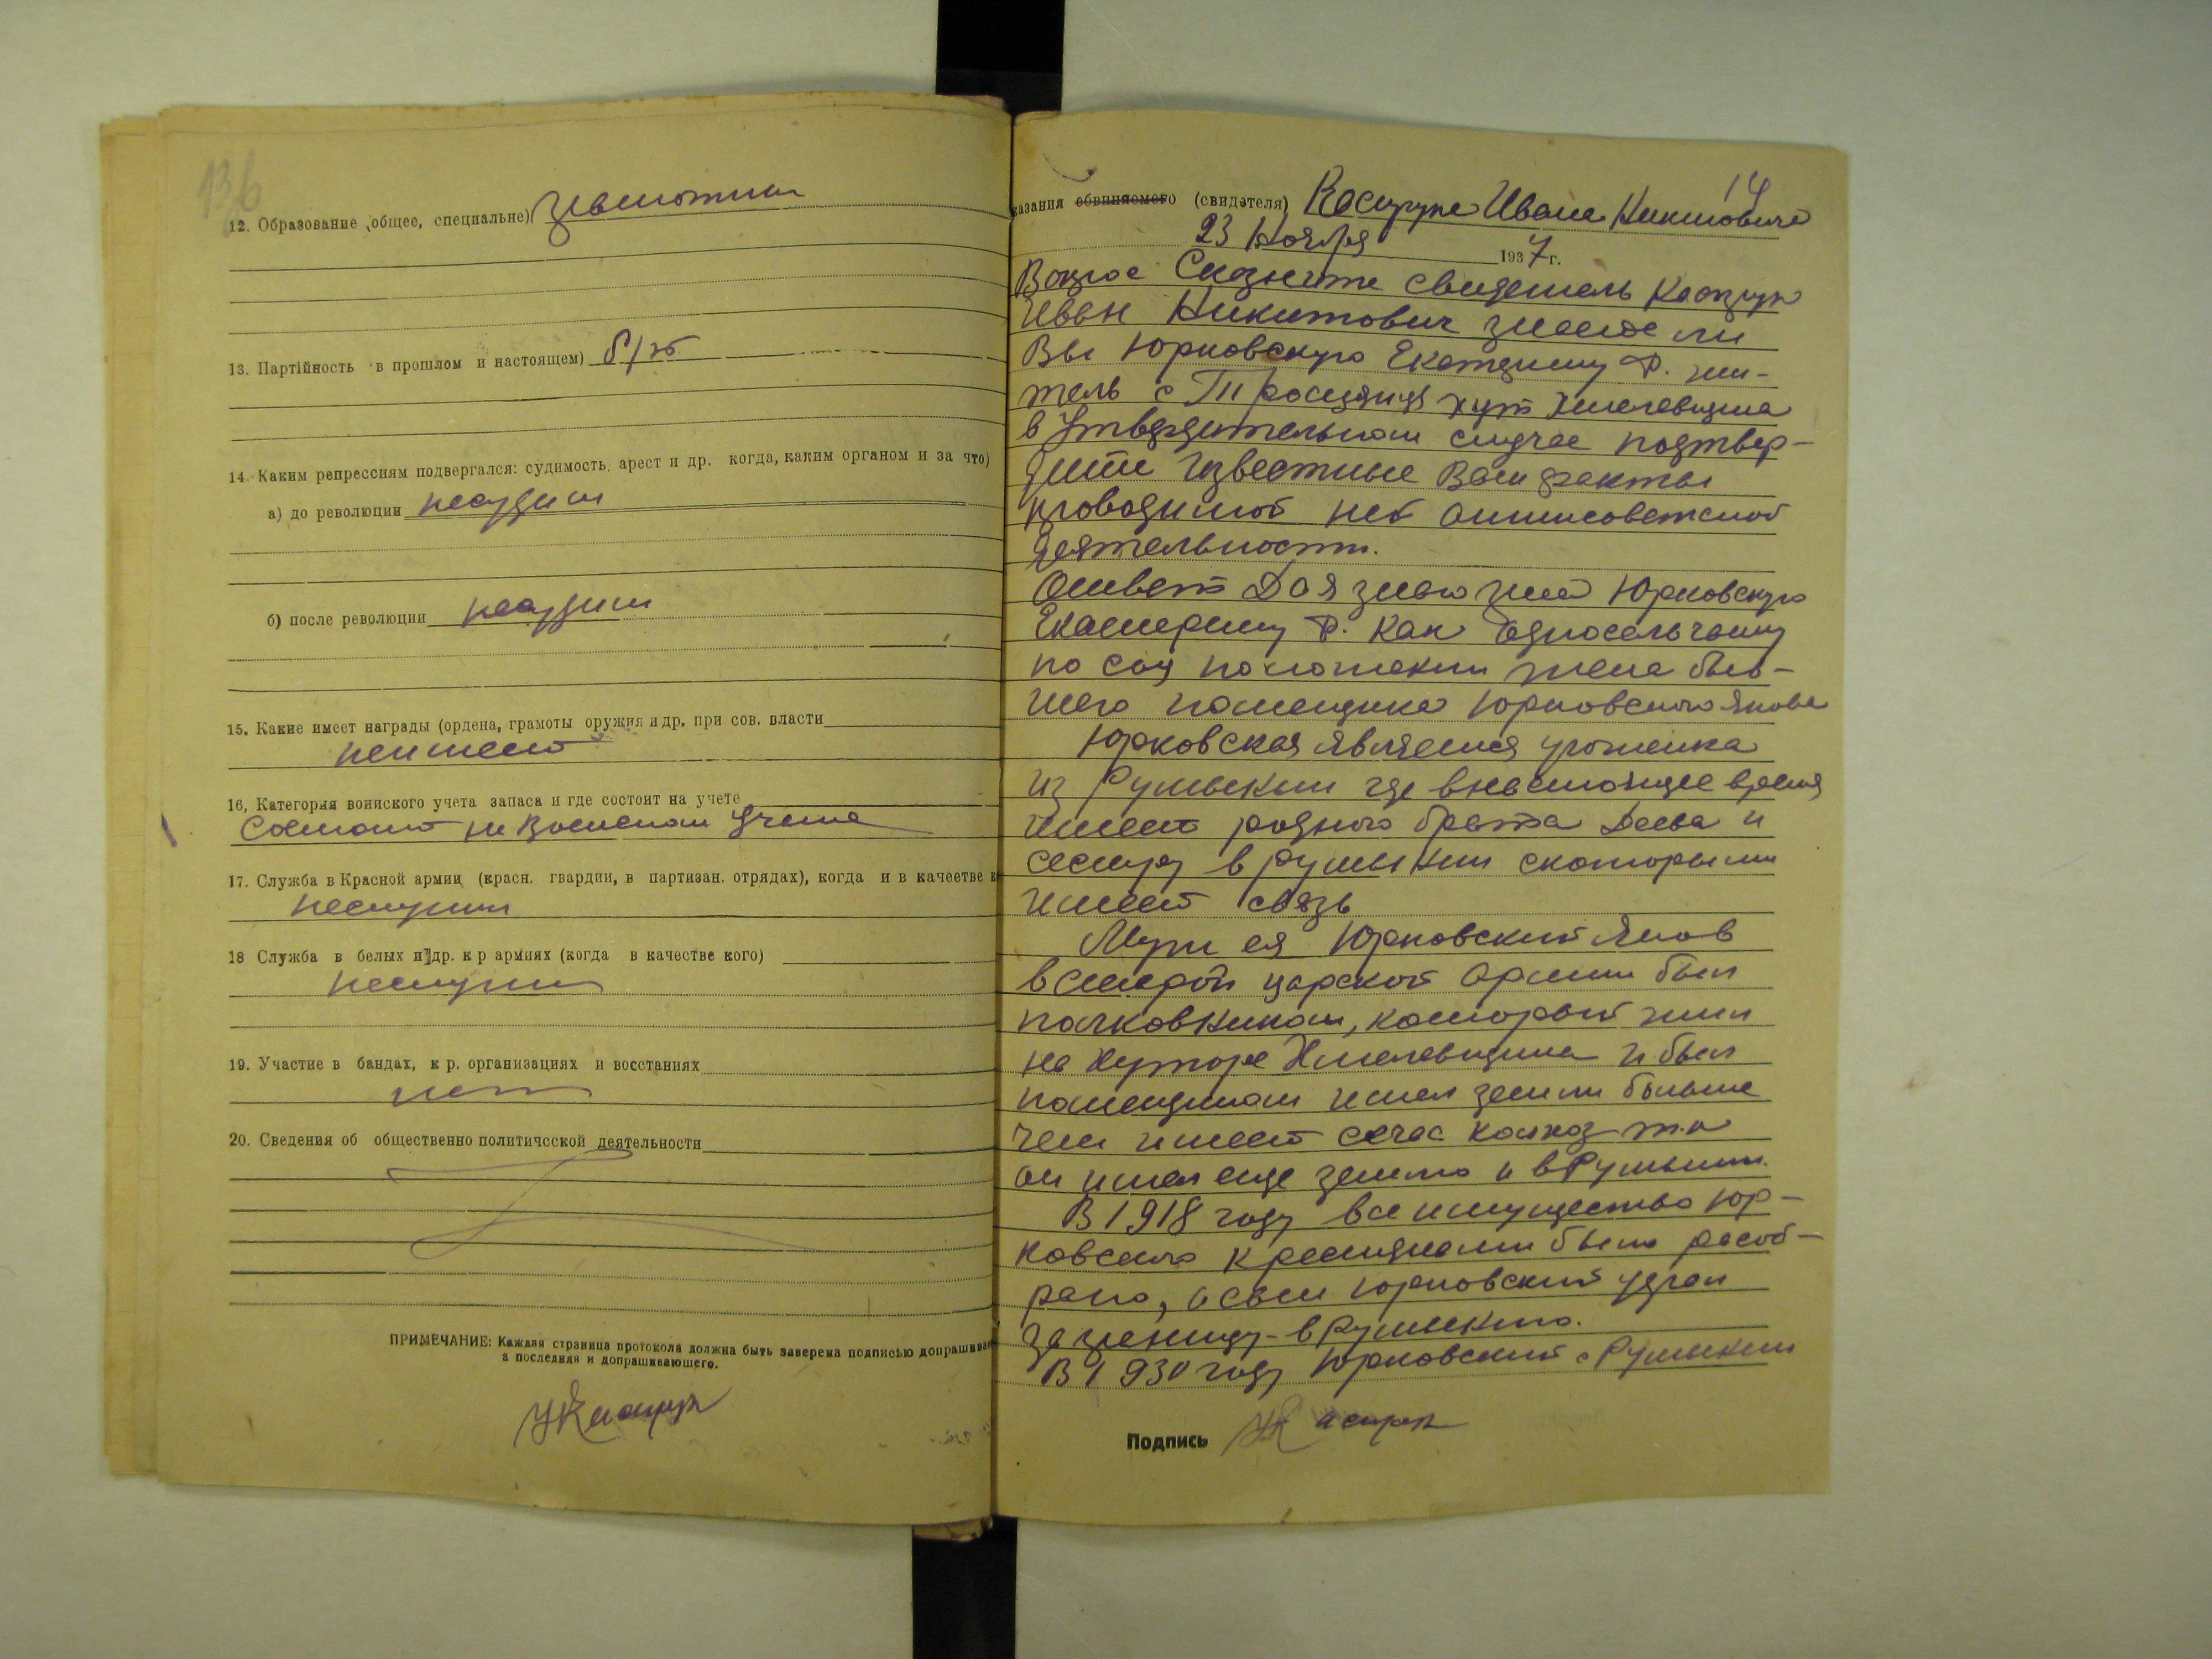 13б
12. Образование (общее, специальне)
13. Партійность в прошлом и настоящем) б/п
14. Каким репрессиям подвергался: судимость, арест и др. когда, каким органом и за что)
а) до революции несудим
б) после революции несудим
15. Какие имеет награды (ордена, грамоты оружия и др. при сов. власти
неимеет
16, Категория воинского учета запаса и где состоит на учете
Состоит на Военном Учете
17. Служба в Красной армии (красн. гвардии, в партизан. отрядах), когда и в качестве к
неслужил
18 Служба в белых и др. к р армиях (когда в качестве кого)
неслужил
19. Участие в бандах, к р. организациях и восстаниях
нет
20. Сведения об общественно политической деятельности
ПРИМЕЧАНИЕ: Каждая страница протокола должна быть заверена подписью допрашивае
а последняя и допрашивающего.
14
казания обвиняемого (свидэтеля) Ивана Никитовича
23 Ноября 1937 г.
Вопрос Скажите свидетель
Иван Никитович знаете ли
Вы Юрковскую Екатерину Ф. жи-
тель с Тростянця хут Хмелевщина
в Утвердительном случае подтвер-
дите Известные Вам факты
проводимой ней антисоветской
деятельности.
Ответ Да я знаю Юрковскую
Екатерину Ф. Как Односельчанку
по соц положении жена быв-
шего помещика Юрковского Якова
Юрковская является уроженка
из Румынии где внастоящее время
имеет родного брата и
сестру в румынии скоторыми
имеет связь
Муж ея Юрковский Яков
в старой царской Армии был
полковником, который жил
на Хуторе Хмелевщина и был
помещиком имел земли больше
чем имеет сечас колхоз т.к
он имел еще землю и в Румынии.
В 1918 году все имущество Юр-
ковского крестянами было разоб-
рано, а сам Юрковский удрал
заграницу - в Румынию.
В 1930 году Юрковский с Румынии
Подпись